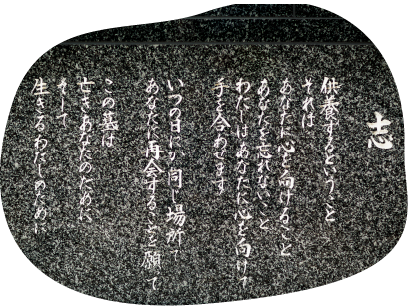 志
供養するということ
それは
あなたに心を向けること
あなたを忘れないこと
わたしはあなたに心を向けて
手を合わせます
いつの日にか同じ場所で
あなたに再会することを願って
この墓は
亡きあなたのために
そして
生きるわたしのために